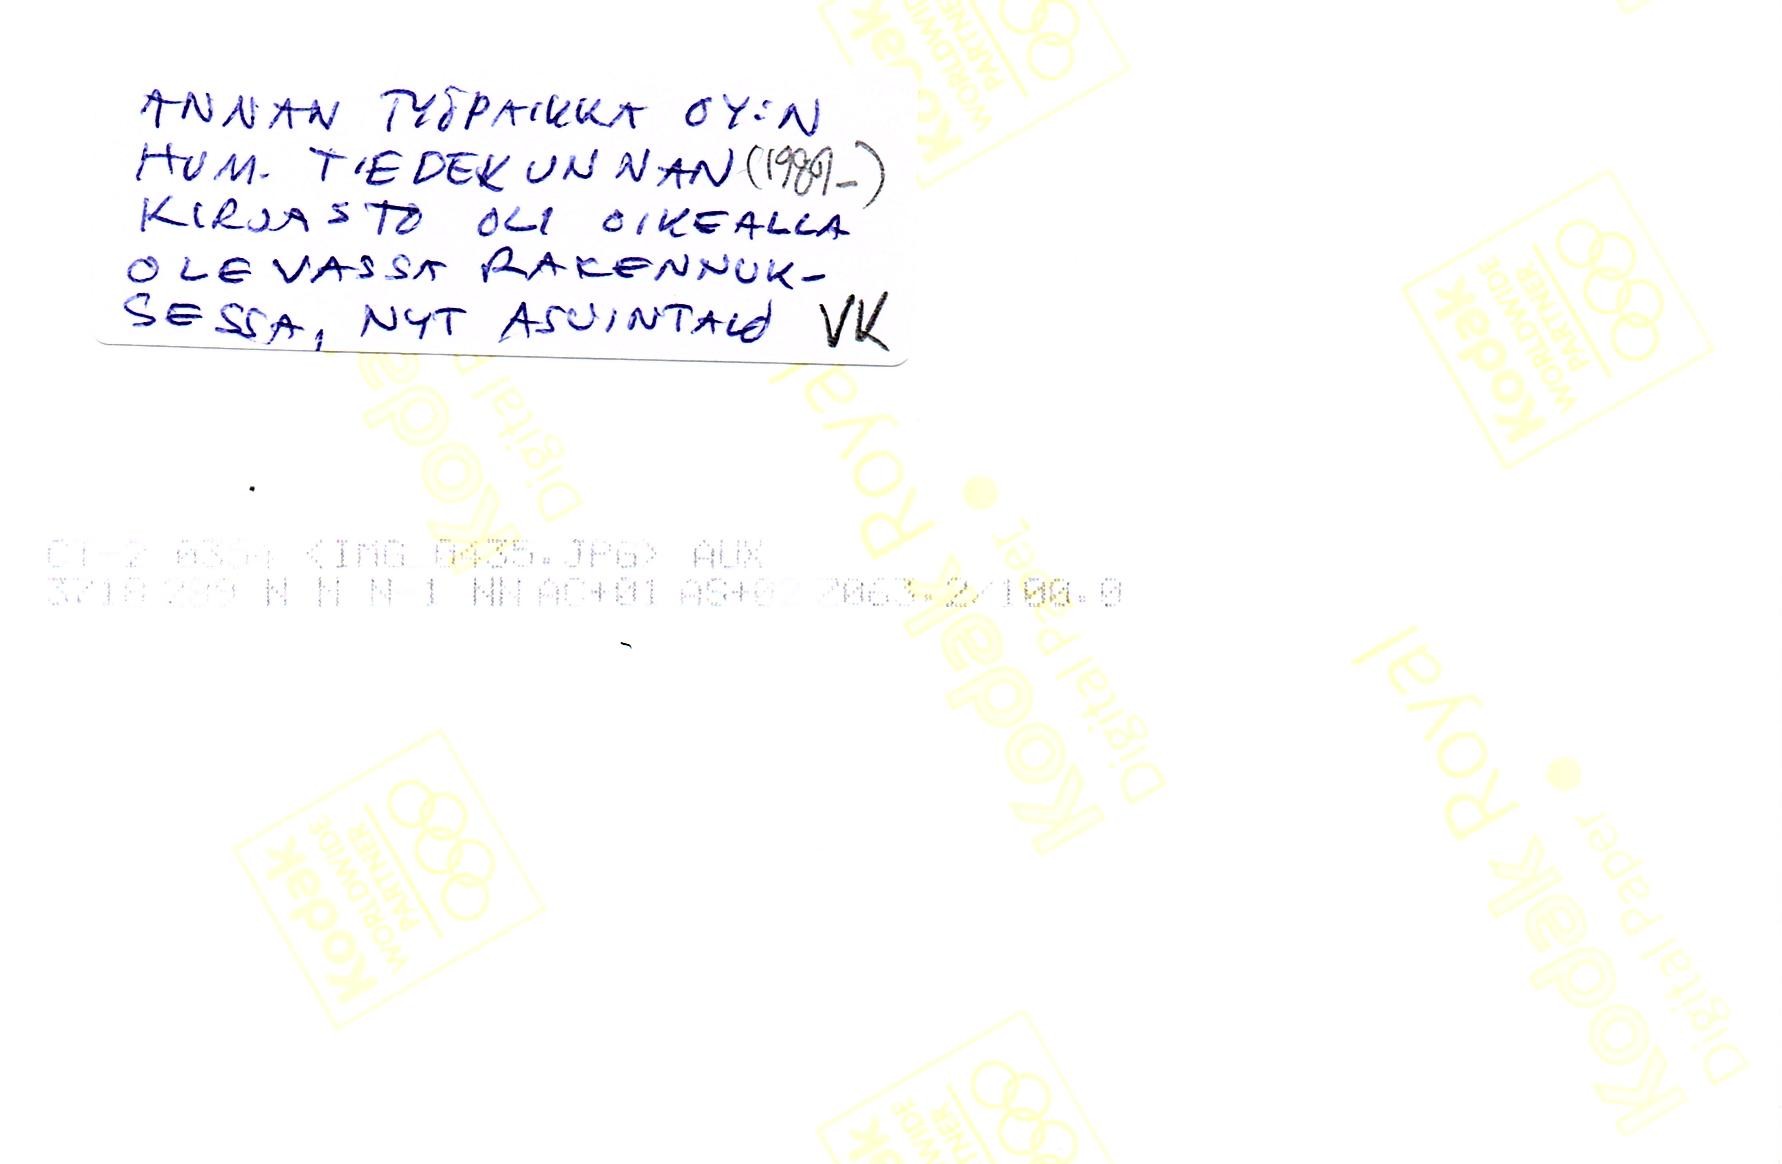 ANNAN TYÖPAIKKA OY:N
HUM. TIEDEKUNNAN (1989-)
KIRJASTO OLI OIKEALLA
OLEVASSA RAKENNUK-
SESSA, NYT ASUINTALO VK
CT-2 0354 <IMG_0435.JPG> AUX
3718 289 N N N-1 NN AC+01 AS+02 2063.2/100.0
Kodak
WORLDWIDE
PARTNER
Kodak
WORLDWIDE
PARTNER
Kodak
Digital
Kodak Royal
Digital Paper
Kodak Royal
Digital Paper
Kodak
WORLDWIDE
PARTNER